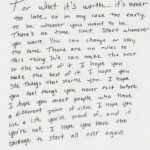 For what it's worth... it's never
too late, or in my case too early,
to be whoever you want to be.
There's no time limit. Start whenever
you want. You can change or stay
the same. There are no rules to
this thing. We can make the best
or the worst of it. I hope you
make the best of it. I hope you
see things that startle you. I hope
you feel things you never felt before.
I hope you meet people who have
a different point of view. I hope you
live a life you're proud of, and if
you're not, I hope you have the
courage to start all over again.